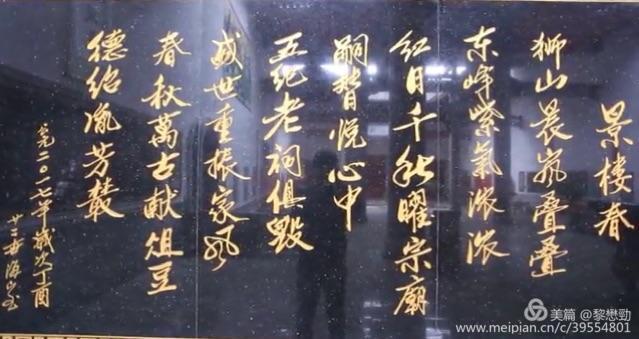 景楼春
狮山晨岚叠叠
东峰紫气浓浓
红日千秋曜宗廟
嗣旹悦心中
五纪老祠俱毁
盛世重振家风
春秋萬古献俎豆
德绍胤芳叢
公元二〇一七年歲次丁酉
美篇 @黎懋勁
www.meipian.cn/c/39554801